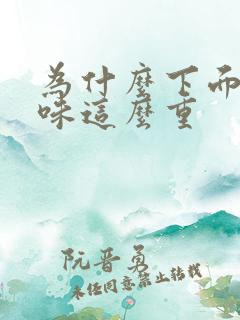 為什麼下面
味這麼重
阮晋勇
未经同意禁止转载